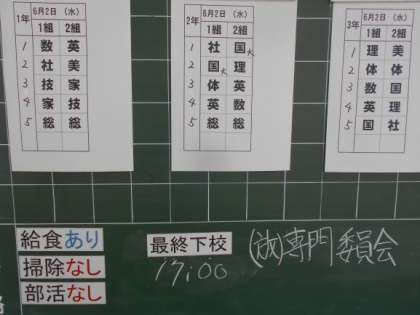 1年
6月2日（水）
1組 2組
1 数 英
2 社 美
3 技 家
4 家 技
5 総 総
2年
6月2日（水）
1組 2組
1 社 国
2 国 理
3 体 英
4 英 数
5 総 総
3年
6月2日（水）
1組 2組
1 理 美
2 体 体
3 数 国
4 英 理
5 国 社
給食あり
掃除なし
部活なし
最終下校
17:00
(放)専門委員会